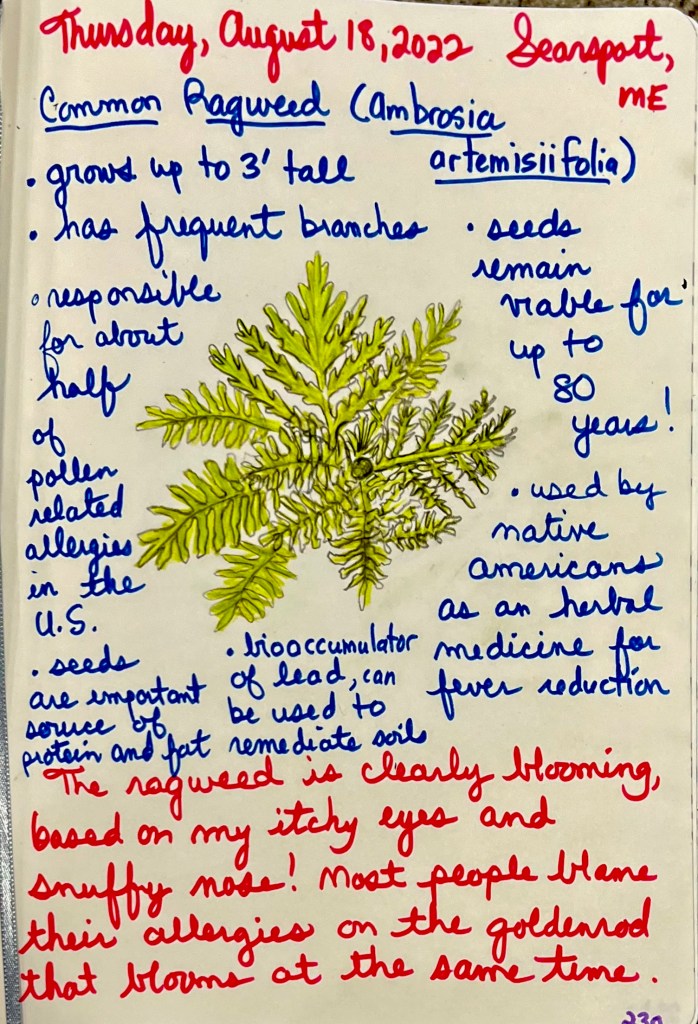 Thursday, August 18, 2022 Searsport,
ME
Common Ragweed (Ambrosia
artemisiifolia)
• grows up to 3' tall
• has frequent branches
• responsible
for about
half
of
pollen
related
allergies
in the
U.S.
• seeds
remain
viable for
up to
80
years!
• used by
native
americans
as an herbal
medicine for
fever reduction
• seeds
are important
source of
protein and fat
• bioaccumulator
of lead, can
be used to
remediate soils
The ragweed is clearly blooming,
based on my itchy eyes and
snuffy nose! Most people blame
their allergies on the goldenrod
that blooms at the same time.
230